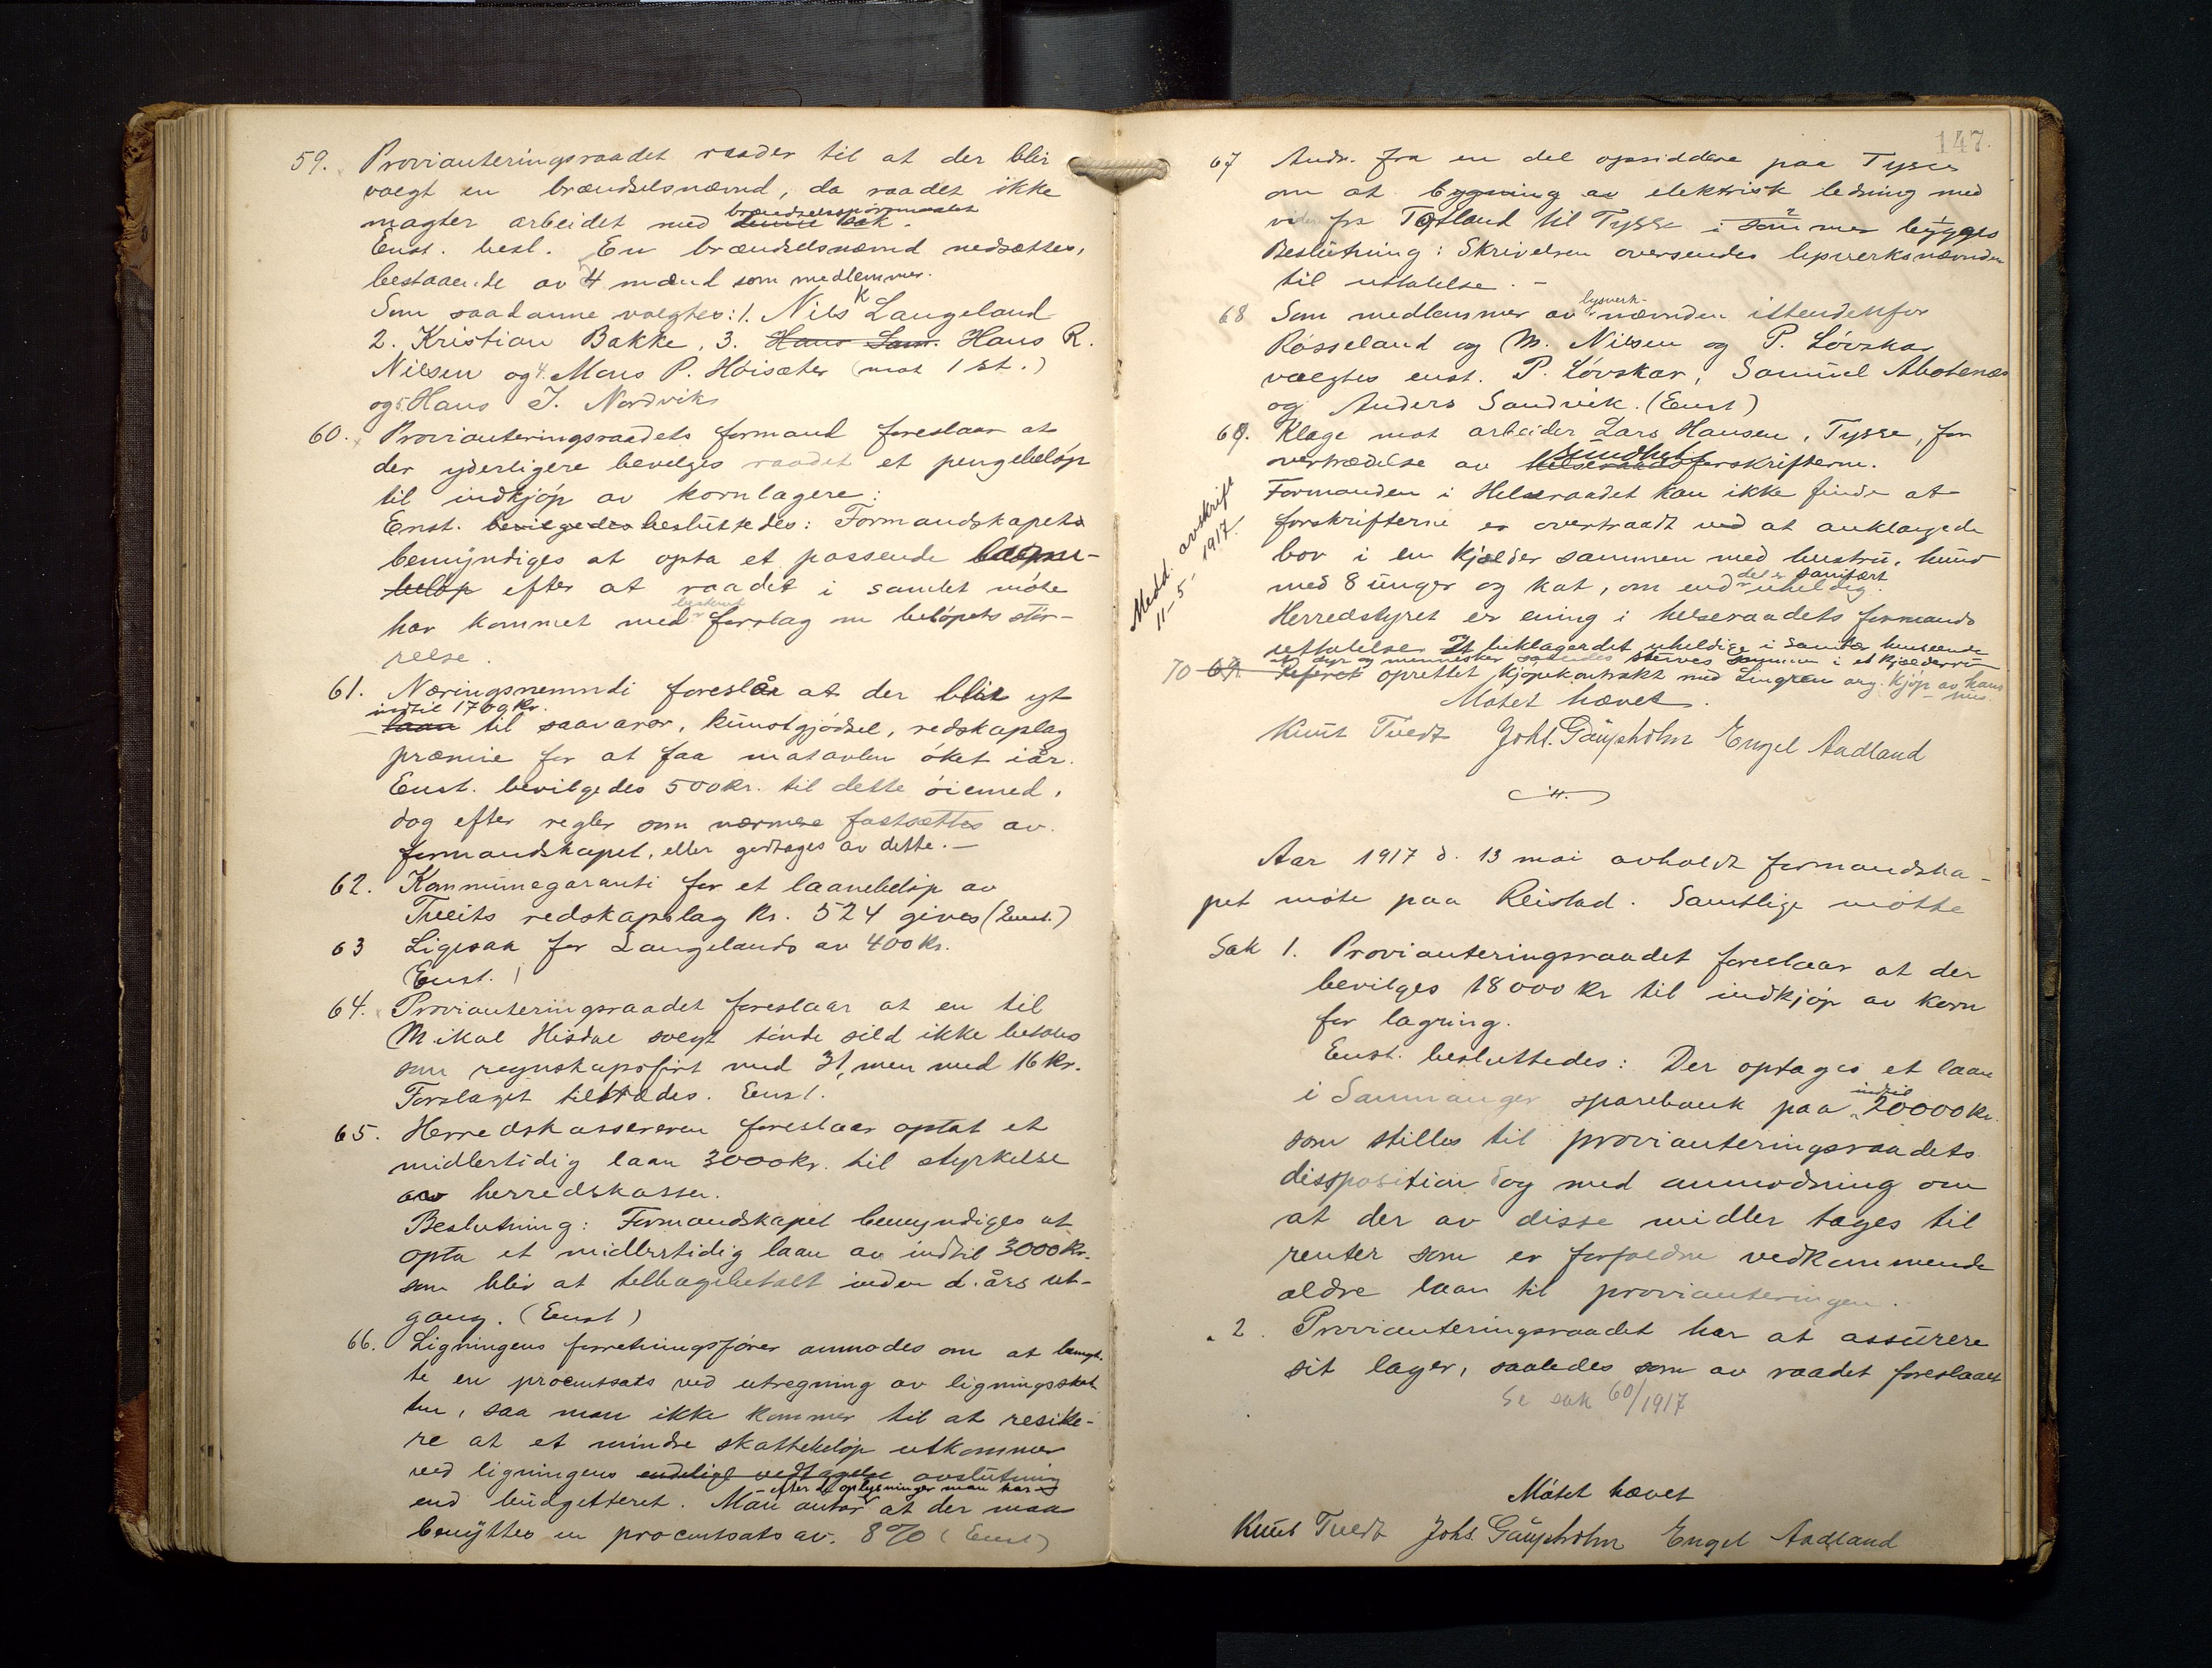 59. Provianteringsraadet raader til at der blir
valgt en brændselsnævnd, da raadet ikke
magter arbeidet med denne sak. brændselsspørsmaalet
Enst. besl. En brændselsnævnd nedsættes,
bestaaende av 4 mænd som medlemmer.
Som saadanne valgtes: 1. Nils K Langeland
2. Kristian Bakke, 3. Hans Sam. Hans R.
Nilsen og 4. Mons P. Høisæter (mot 1 st.)
og 5. Hans J. Nordvik
60. Provianteringsraadets formand foreslaar at
der yderligere bevilges raadet et pengebeløp
til indkjøp av kornlagere:
Enst. bevilgedes besluttedes: Formandskapets
bemyndiges at opta et passende
beløp efter at raadet i samlet møte
har kommet med bestemt forslag om beløpets stør-
relse.
61. Næringsnemndi foreslår at der blir yt
indtil 1769 kr.
laan til saavaror, kunstgjødsel, redskaplag
præmie for at faa matavlen øket iår.
Enst. bevilgedes 500 kr. til dette øiemed,
dog efter regler som nærmere fastsættes av
formandskapet, eller godtages av dette. —
62. Kommunegaranti for et laanebeløp av
Tveits redskapslag kr. 524 gives (Enst.)
63 Ligesaa for Langelands av 400 kr.
Enst. !
64. Provianteringsraadet foreslaar at en til
Mikal Hisdal solgt tønde sild ikke betales
som regnskapsført med 31, men med 16 kr.
Forslaget tiltrædes. Enst.
65. Herredskassereren foreslaar optat et
midlertidig laan 3000 kr. til styrkelse
av herredskassen.
Beslutning: Formandskapet bemyndiges at
opta et midlertidig laan av indtil 3000 kr.
som blir at tilbagebetalt inden d. års ut-
gang. (Enst)
66. Ligningens forretningsfører anmodes om at benyt-
te en procentsats ved utregning av ligningsskat
ten, saa man ikke kommer til at resike-
re at et mindre skattebeløp utkommer
ved ligningens endelige vedtagelse avslutning
efter de oplysninger man har
end budgetteret. Man antar at der maa
benyttes en procentsats av. 8% (Enst)
147.
67 Andr. fra en del opsiddere paa Tysse
om at bygning av elektrisk ledning med
videre fra Tøtland til Tysse i sommer bygges
Beslutning: Skrivelsen oversendes lysverksnævnden
til uttalelse. —
68 Som medlemmer av lysverk- nævnden istedenfor
Røsseland og M. Nilsen og P. Løvskar
valgtes enst. P. Løvskar, Samuel Abotsnes
og Anders Sandvik. (Enst)
69. Klage mot arbeider Lars Hansen, Tysse, for
overtrædelse av helseraads sundhets forskrifterne.
Formanden i Helseraadet kan ikke finde at
forskrifterne er overtraadt ved at anklagede
bor i en kjælder sammen med hustru, hund
med 8 unger og kat, om end det er sanitært uheldig.
Herredstyret er enig i helseraadets formands
uttalelse. At beklager det uheldige i sanitær henseende
at dyr og mennesker saaledes stuves sammen i et kjælderrum
Medd. avskrift
11-5- 1917.
70 69. oprettet kjøpekontrakt med Lingren ang. kjøp av hans
hus.
Møtet hævet.
Knut Tvedt Johs. Gaupholm Engel Aadland
Aar 1917 d. 13 mai avholdt formandska-
pet møte paa Reistad. Samtlige møtte
Sak 1. Provianteringsraadet foreslaar at der
bevilges 18000 kr til indkjøp av korn
for lagring.
Enst. besluttedes: Der optages et laan
i Samnanger sparebank paa indtil 20000 kr.
som stilles til provianteringsraadets
disposition dog med anmodning om
at der av disse midler tages til
renter som er forfaldne vedkommende
ældre laan til provianteringen.
" 2. Provianteringsraadet har at assurere
sit lager, saaledes som av raadet foreslaaet
Se sak 60/1917
Møtet hævet
Knut Tvedt Johs. Gaupholm Engel Aadland